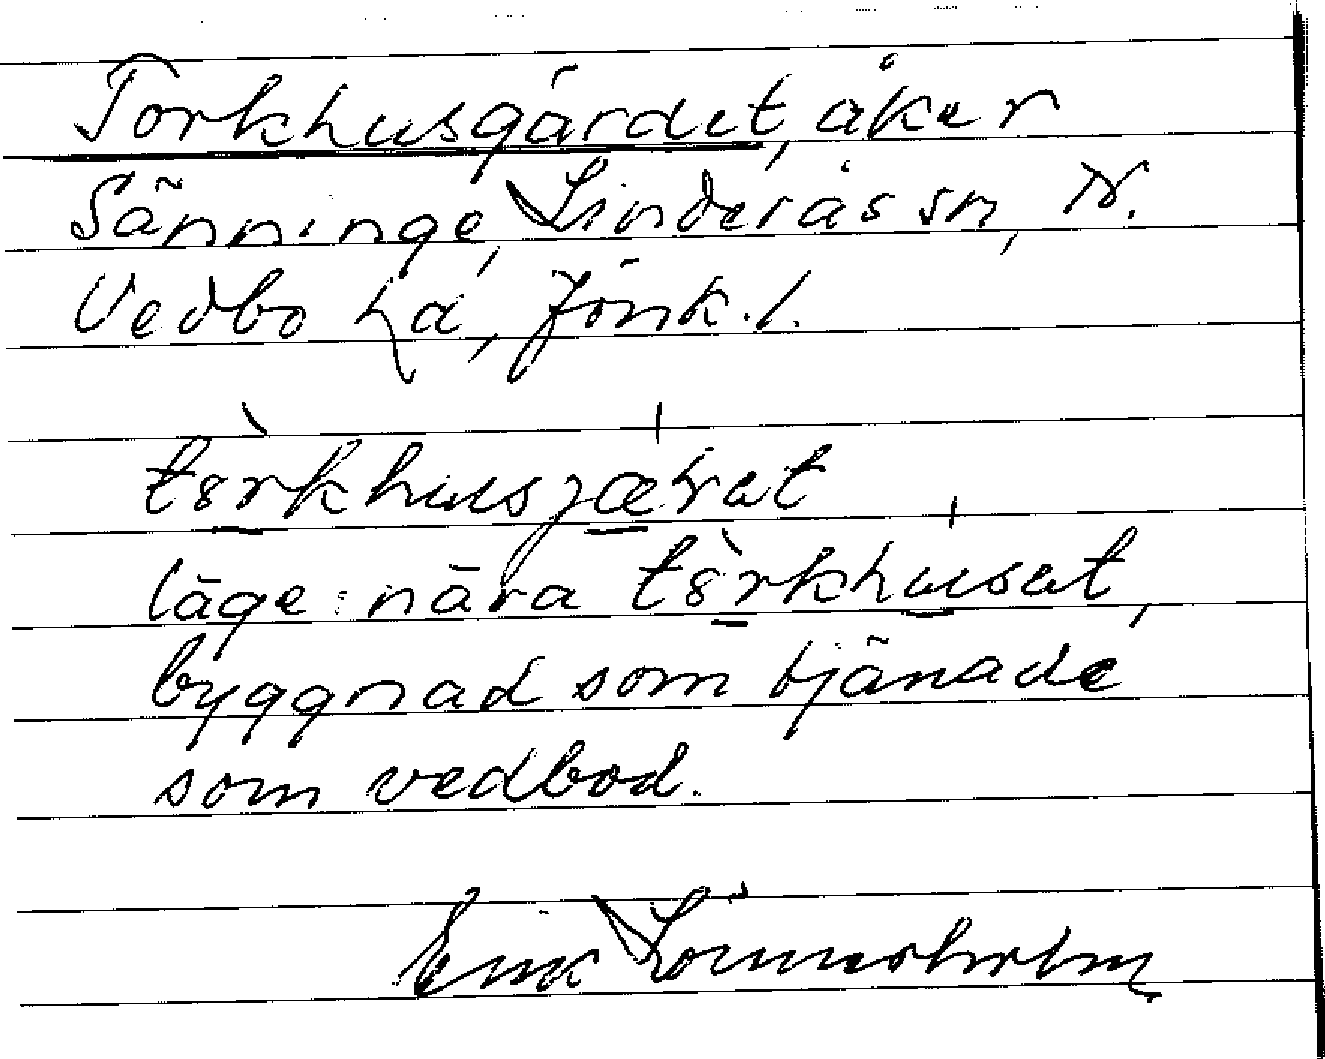 Torkhusgärdet, åker
Sänninge, Linderås sn, N.
Vedbo hd, Jönk. l.
tɜ̀rkhusjæ̍rat
läge: nära tɜ̀rkhu̍sat,
byggnad som tjänade
som vedbod.
Erik Lönnerholm